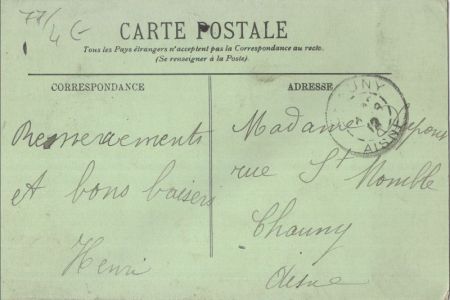 77/4 C-
CARTE POSTALE
Tous les Pays étrangers n'acceptent pas la Correspondance au recto.
(Se renseigner à la Poste).
CORRESPONDANCE
Remerciements
et bons baisers
Henri
ADRESSE
UNY
12
AISNE
Madame
rue St Momble
Chauny
Aisne